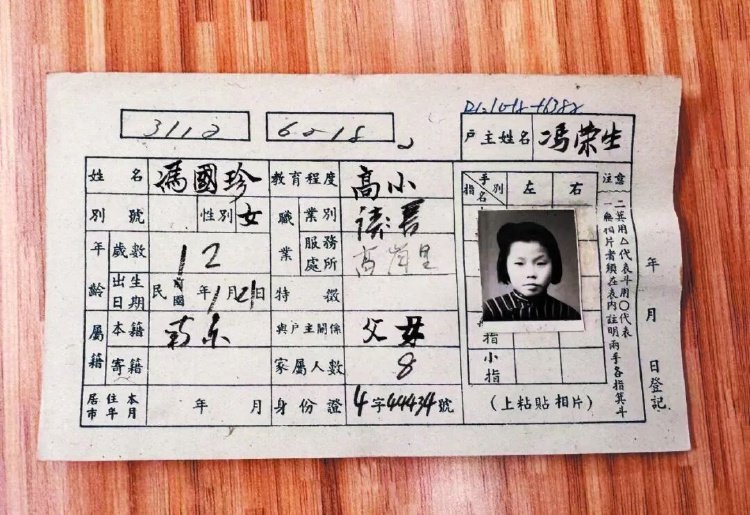 3112 6218
戶主姓名 馮荣生
姓名 馮國珍 教育程度 高小
別號 性別 女 職業 業別 讀書
年齡 歲數 12 服務處所 高崗里
出生日期 民國 年1月21日 特徵
屬籍 本籍 南京 與戶主關係 父母
寄籍 家屬人數 8
居住本市年月 年 月 身份證 4字44434號
指名 手別 左 右
指
小指
(上粘貼相片)
注意
一無相片者須在表內註明兩手各指箕斗
二箕用△代表斗用○代表
年 月 日登記